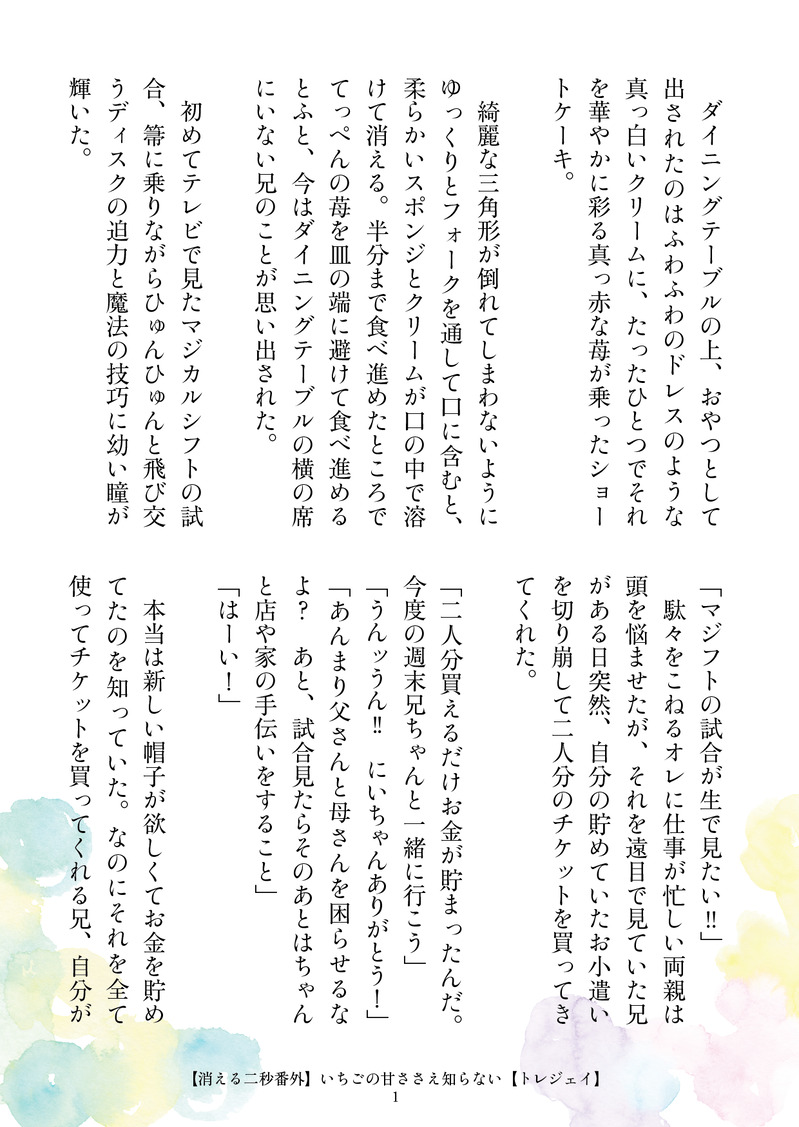 ダイニングテーブルの上、おやつとして
出されたのはふわふわのドレスのような
真っ白いクリームに、たったひとつでそれ
を華やかに彩る真っ赤な苺が乗ったショー
トケーキ。
綺麗な三角形が倒れてしまわないように
ゆっくりとフォークを通して口に含むと、
柔らかいスポンジとクリームが口の中で溶
けて消える。半分まで食べ進めたところで
てっぺんの苺を皿の端に避けて食べ進める
とふと、今はダイニングテーブルの横の席
にいない兄のことが思い出された。
初めてテレビで見たマジカルシフトの試
合、箒に乗りながらひゅんひゅんと飛び交
うディスクの迫力と魔法の技巧に幼い瞳が
輝いた。
「マジフトの試合が生で見たい‼」
駄々をこねるオレに仕事が忙しい両親は
頭を悩ませたが、それを遠目で見ていた兄
がある日突然、自分の貯めていたお小遣い
を切り崩して二人分のチケットを買ってき
てくれた。
「二人分買えるだけお金が貯まったんだ。
今度の週末兄ちゃんと一緒に行こう」
「うんッうん‼　にいちゃんありがとう！」
「あんまり父さんと母さんを困らせるな
よ？　あと、試合見たらそのあとはちゃん
と店や家の手伝いをすること」
「はーい！」
本当は新しい帽子が欲しくてお金を貯め
てたのを知っていた。なのにそれを全て
使ってチケットを買ってくれる兄、自分が
【消える二秒番外】いちごの甘ささえ知らない【トレジェイ】
1